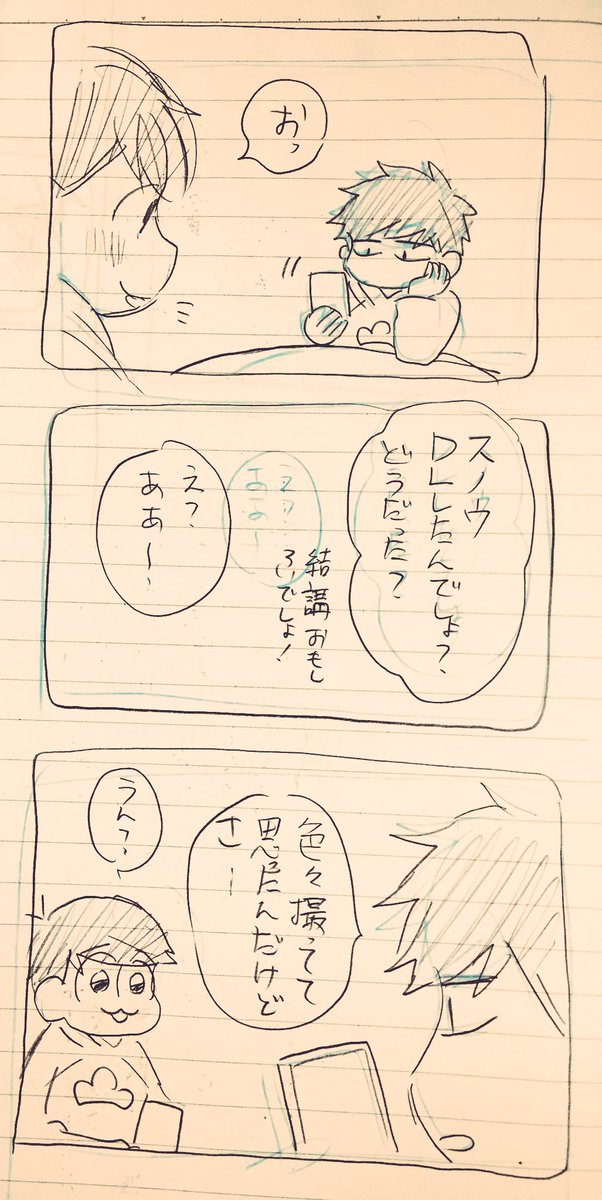 おっ
スノウ
DLしたんでしょ?
どうだった?
結講おもし
ろいでしょ!
えっ?
ああ〜
えっ?
ああ〜・
色々撮ってて
思ったんだけど
さー
うんっ?